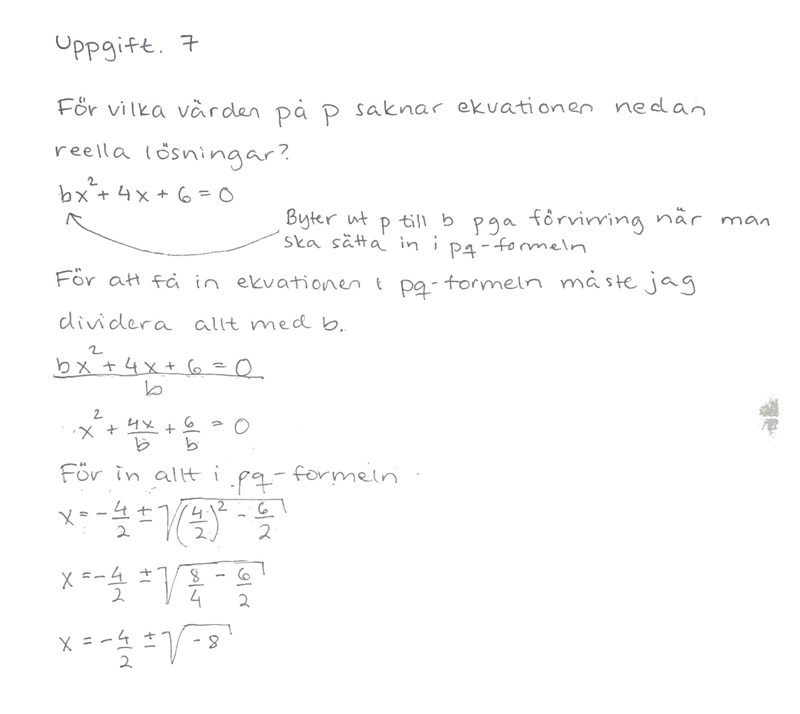 Uppgift. 7
För vilka värden på p saknar ekvationen nedan
reella lösningar?
bx² + 4x + 6 = 0
Byter ut p till b pga förvirring när man
ska sätta in i pq-formeln
För att få in ekvationen i pq-formeln måste jag
dividera allt med b.
(bx² + 4x + 6 = 0)/b
x² + 4x/b + 6/b = 0
För in allt i pq-formeln
x = -4/2 ± √((4/2)² - 6/2)
x = -4/2 ± √(8/4 - 6/2)
x = -4/2 ± √(-8)